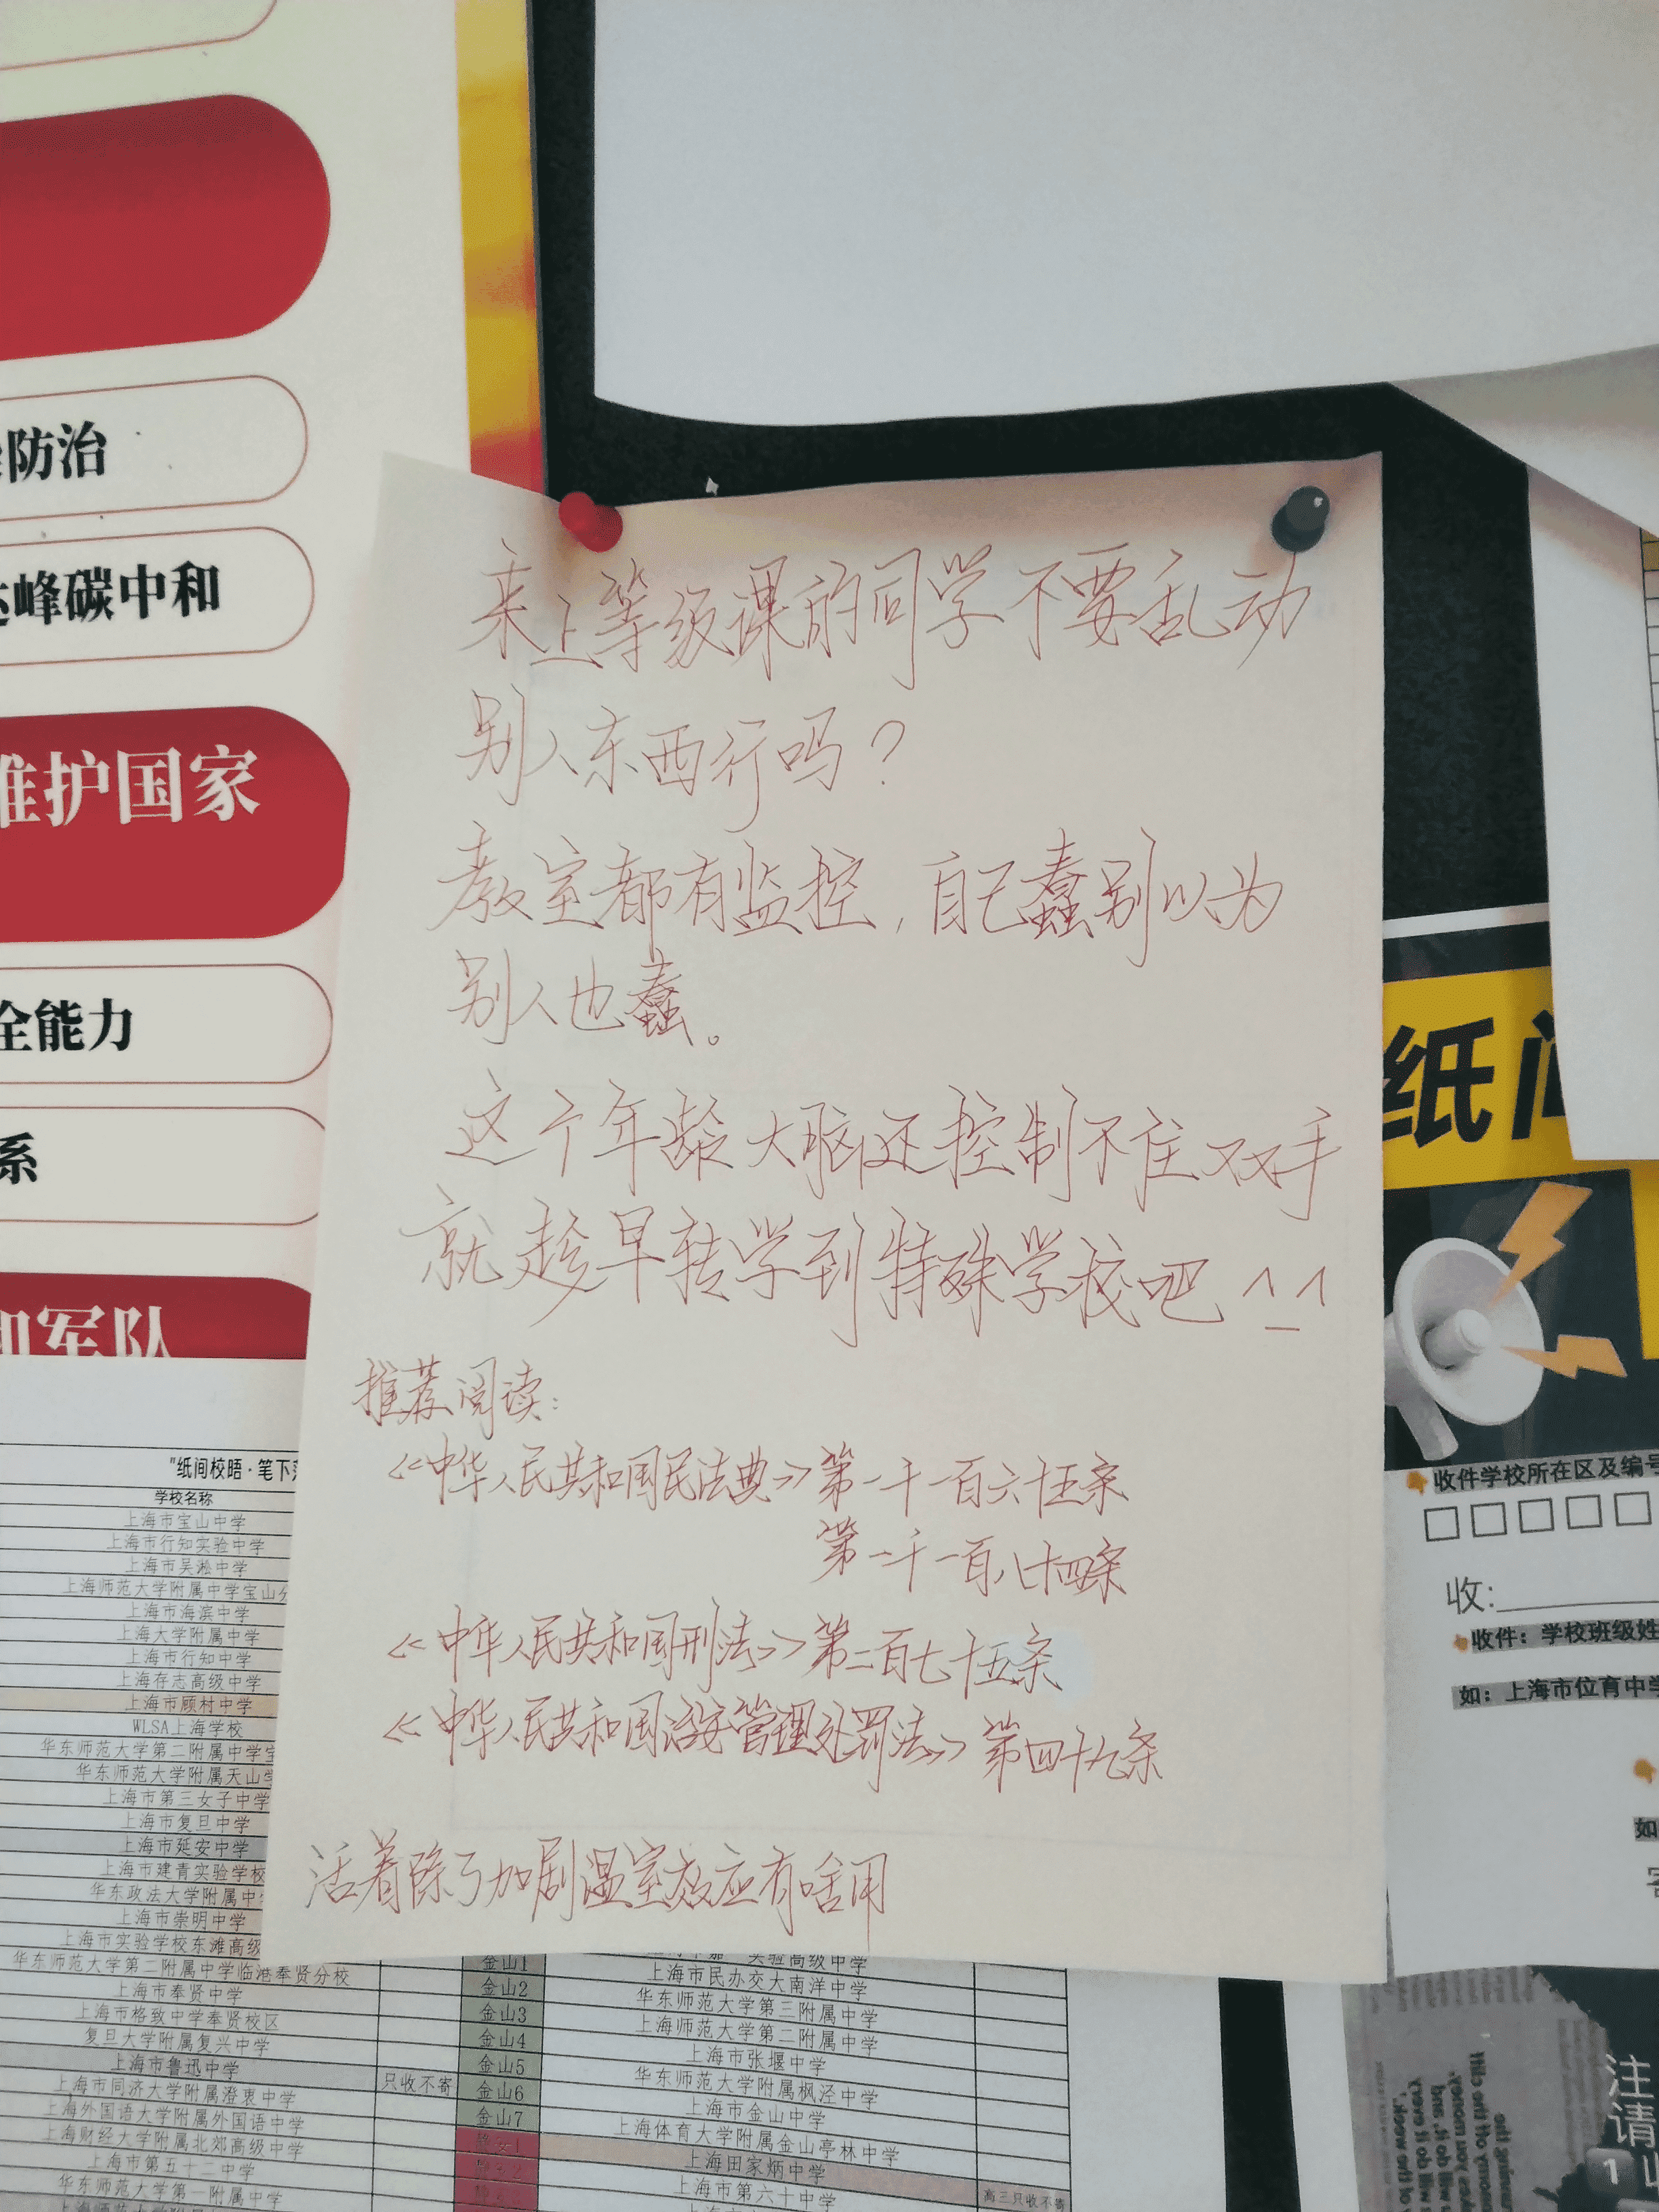 防治
峰碳中和
维护国家
全能力
系
和军队
来上等级课的同学不要乱动
别人东西行吗？
教室都有监控，自己蠢别以为
别人也蠢。
这个年龄大脑还控制不住双手
就趁早转学到特殊学校吧^_^
推荐阅读：
《中华人民共和国民法典》第一千一百六十五条
第一千一百八十四条
《中华人民共和国刑法》第二百七十五条
《中华人民共和国治安管理处罚法》第四十九条
活着除了加剧温室效应有啥用
"纸间校晤·笔下
学校名称
上海市宝山中学
上海市行知实验中学
上海市吴淞中学
上海师范大学附属中学宝山分
上海市海滨中学
上海大学附属中学
上海市行知中学
上海存志高级中学
上海市顾村中学
WLSA上海学校
华东师范大学第二附属中学宝
华东师范大学附属天山学
上海市第三女子中学
上海市复旦中学
上海市延安中学
上海市建青实验学校
华东政法大学附属中
上海市崇明中学
上海市实验学校东滩高级
华东师范大学第二附属中学临港奉贤分校
上海市奉贤中学
上海市格致中学奉贤校区
复旦大学附属复兴中学
上海市鲁迅中学
上海市同济大学附属澄衷中学 只收不寄
上海外国语大学附属外国语中学
上海财经大学附属北郊高级中学
上海市第五十二中学
华东师范大学第一附属中学
金山1 实验高级中学
金山2 上海市民办交大南洋中学
金山3 华东师范大学第三附属中学
金山4 上海师范大学第二附属中学
金山5 上海市张堰中学
金山6 华东师范大学附属枫泾中学
金山7 上海市金山中学
上海体育大学附属金山亭林中学
上海田家炳中学
上海市第六十中学 高三只收不寄
纸间
收件学校所在区及编号
收：
收件：学校班级姓
如：上海市位育中学
如
注
请
1